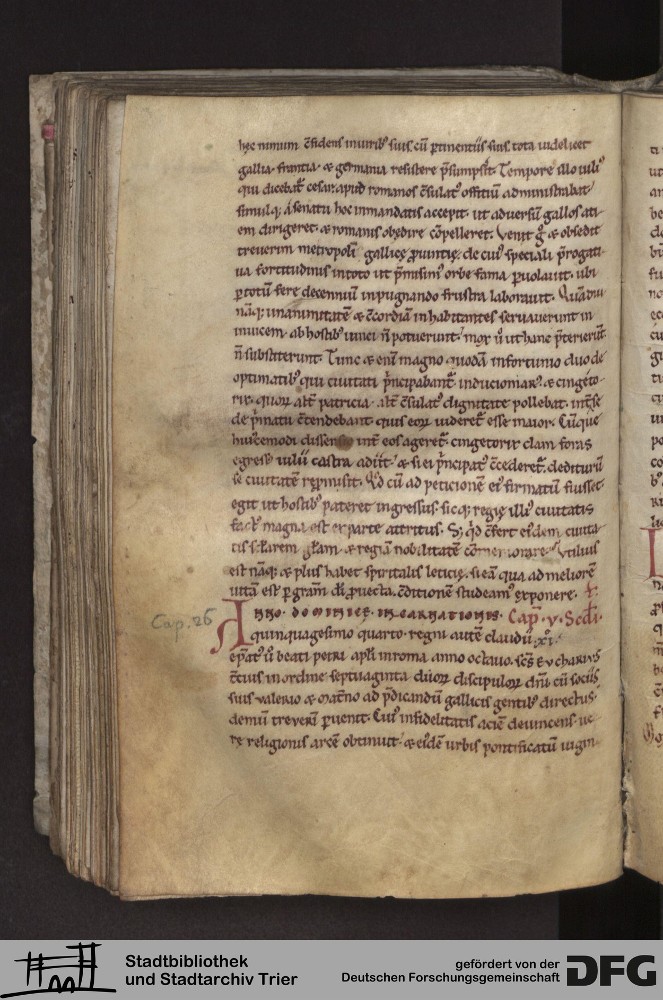 hęc nimium c̄fidens muribꝰ suis cū ꝑtinentiis suis tota uidelicet
gallia· francia· & germania resistere p̄sumpsit. Tempore illo iuliꝰ
qui dicebat̄ cesar apud romanos c̄sulatꝰ offitiū administrabat
simulq; a senatu hoc in mandatis accepit. ut aduersū gallos aci
em dirigeret· & romanis obędire cōpelleret. Venit g̊ & obsedit
treuerim metropoli gallicę ꝓuintię. de cuiꝰ speciali p̄rogati
ua fortitudinis in toto ut p̄misimꝰ orbe fama ꝑuolauit. ubi
ꝑ totū fere decennium inpugnando frustra laborauit. Quādiu
nāq; unanimitatē & c̄cordiā inhabitantes seruauerunt in
inuicem· ab hostibꝰ uinci n̄ potuerunt. mox ů ut hanc p̄terierūt
n̄ substiterunt. Tunc & eni magno quodā infortunio duo de
optimatibꝰ qui ciuitati p̄ncipabant̄. induciomarꝰ & cingeto-
rix· quoꝝ alt̄ patricia· alt̄ c̄sulatꝰ dignitate pollebat. int̄ se
de p̄ncipatu c̄tendebant. quis eoꝝ uideret̄ esse maior. Cūque
huiꝰcemodi dissensio int̄ eos ageret̄. cingetorix clam foras
egressꝰ iulii castra adiit. & si ei p̄ncipatꝰ c̄cederet̄. dediturū
se ciuitatē rep̄misit. Qd cū ad peticionē eiꝰ firmatū fuisset.
egit ut hostibꝰ pateret ingressus. sicq; regię illiꝰ ciuitatis
fastꝰ magna est ex parte attritus. S; qd c̄fert eidem ciuita
tis s̄c̄larem gl̄am· & regiā nobilitatē cōmemorare? Vtilius
est nāq; & plus habet spiritalis leticię. si eā qua ad meliorē
uitā est ꝑ gram̄ di ꝓuecta. c̄ditionē studeamꝰ exponere.
Anno· dominicę· incarnationis· Cap̄· v· Scdi
quinquagesimo quarto· regni autē claudii· xi·
ep̄atꝰ ů beati petri apl̄i in roma anno octauo. sc̄s Evchariꝰ
c̄tius in ordine septuaginta duoꝝ discipuloꝝ dn̄i cū sociis
suis valerio & mat̄no ad p̄dicandū gallicis gentibꝰ directus.
demū treverā ꝑuenit. Cuiꝰ infidelitatis aciē deuincens· ue
rę religionis arcē obtinuit· & eidē urbis pontificatū uigin
Cap. 26
Stadtbibliothek
und Stadtarchiv Trier
gefördert von der
Deutschen Forschungsgemeinschaft
DFG